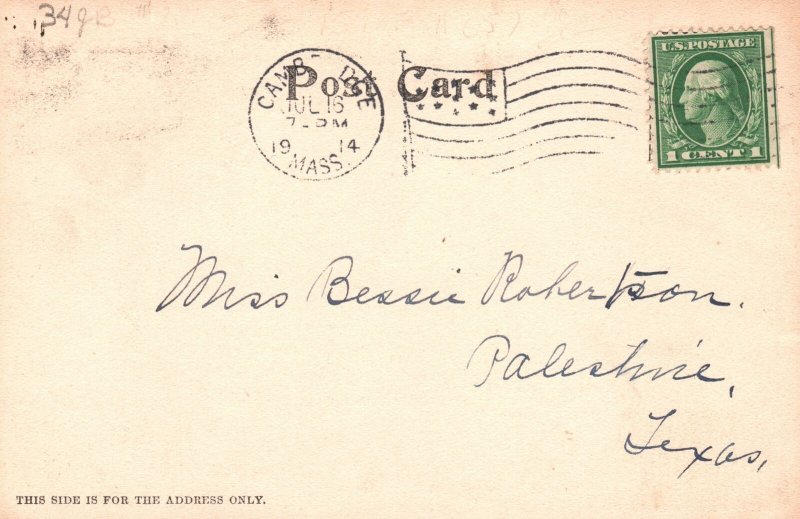 34
Post Card
U.S. POSTAGE
JUL 16
7-PM
19 14
MASS.
1 CENT 1
Miss Bessie Robertson.
Palestine,
Texas,
THIS SIDE IS FOR THE ADDRESS ONLY.